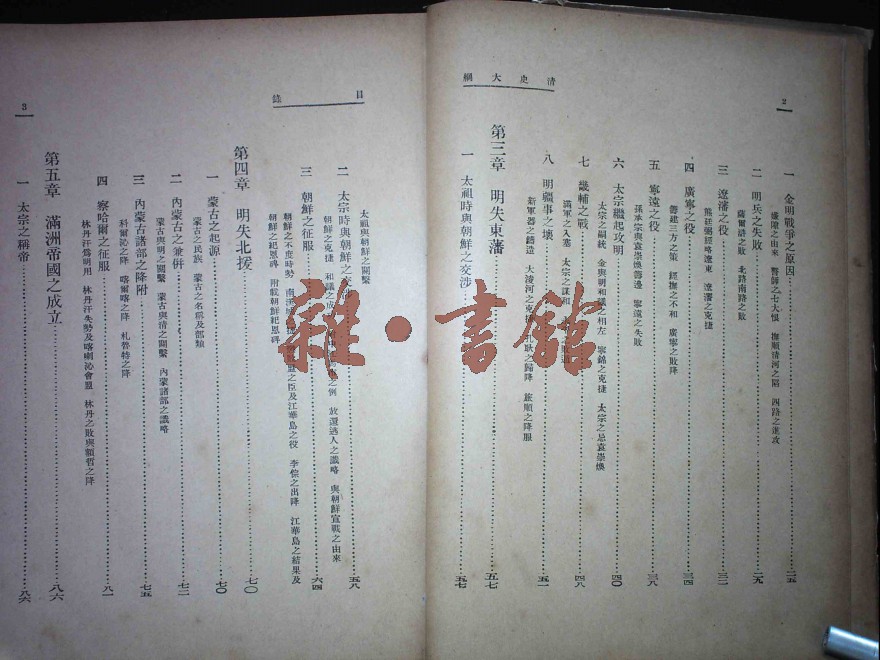 清史大綱
2
一 金明戰爭之原因……二五
釁隙之由來 誓師之七大恨 撫順清河之陷 四路之進攻
二 明兵之失敗……二九
薩爾滸之敗 北路南路之敗
三 遼瀋之役……三二
熊廷弼經略遼東 遼瀋之克捷
四 廣寧之役……三四
籌建三方之策 經撫之不和 廣寧之敗降
五 寧遠之役……三八
孫承宗與袁崇煥籌邊 寧遠之失敗
六 太宗繼起攻明……四〇
太宗之嗣統 金與明和議之相左 寧錦之克捷 太宗之忌袁崇煥
七 畿輔之戰……四八
滿軍之入塞 太宗之謀和
八 明疆事之壞……五一
新軍器之鑄造 大淩河之克捷 孔耿之歸降 旅順之降服
第三章 明失東藩……五七
一 太祖時與朝鮮之交涉……五七
目錄
3
太祖與朝鮮之關繫
二 太宗時與朝鮮之交涉……五八
朝鮮之克捷 和議之成 之例 放還逃人之議略 與朝鮮宣戰之由來
三 朝鮮之征服……六四
朝鮮之不度時勢 南漢城 之臣及江華島之役 李倧之出降 江華島之結果及
朝鮮之紀恩碑 附載朝鮮紀恩碑
第四章 明失北援……七〇
一 蒙古之起源……七〇
蒙古之民族 蒙古之名稱及部類
二 內蒙古之兼併……七二
蒙古與明之關繫 蒙古與清之關繫 內蒙諸部之議略
三 內蒙古諸部之降附……七五
科爾沁之降 喀爾喀之降 札魯特之降
四 察哈爾之征服……八一
林丹汗爲明用 林丹汗失勢及喀喇沁會盟 林丹之敗與額哲之降
第五章 滿洲帝國之成立……八六
一 太宗之稱帝……八六
雜·書館